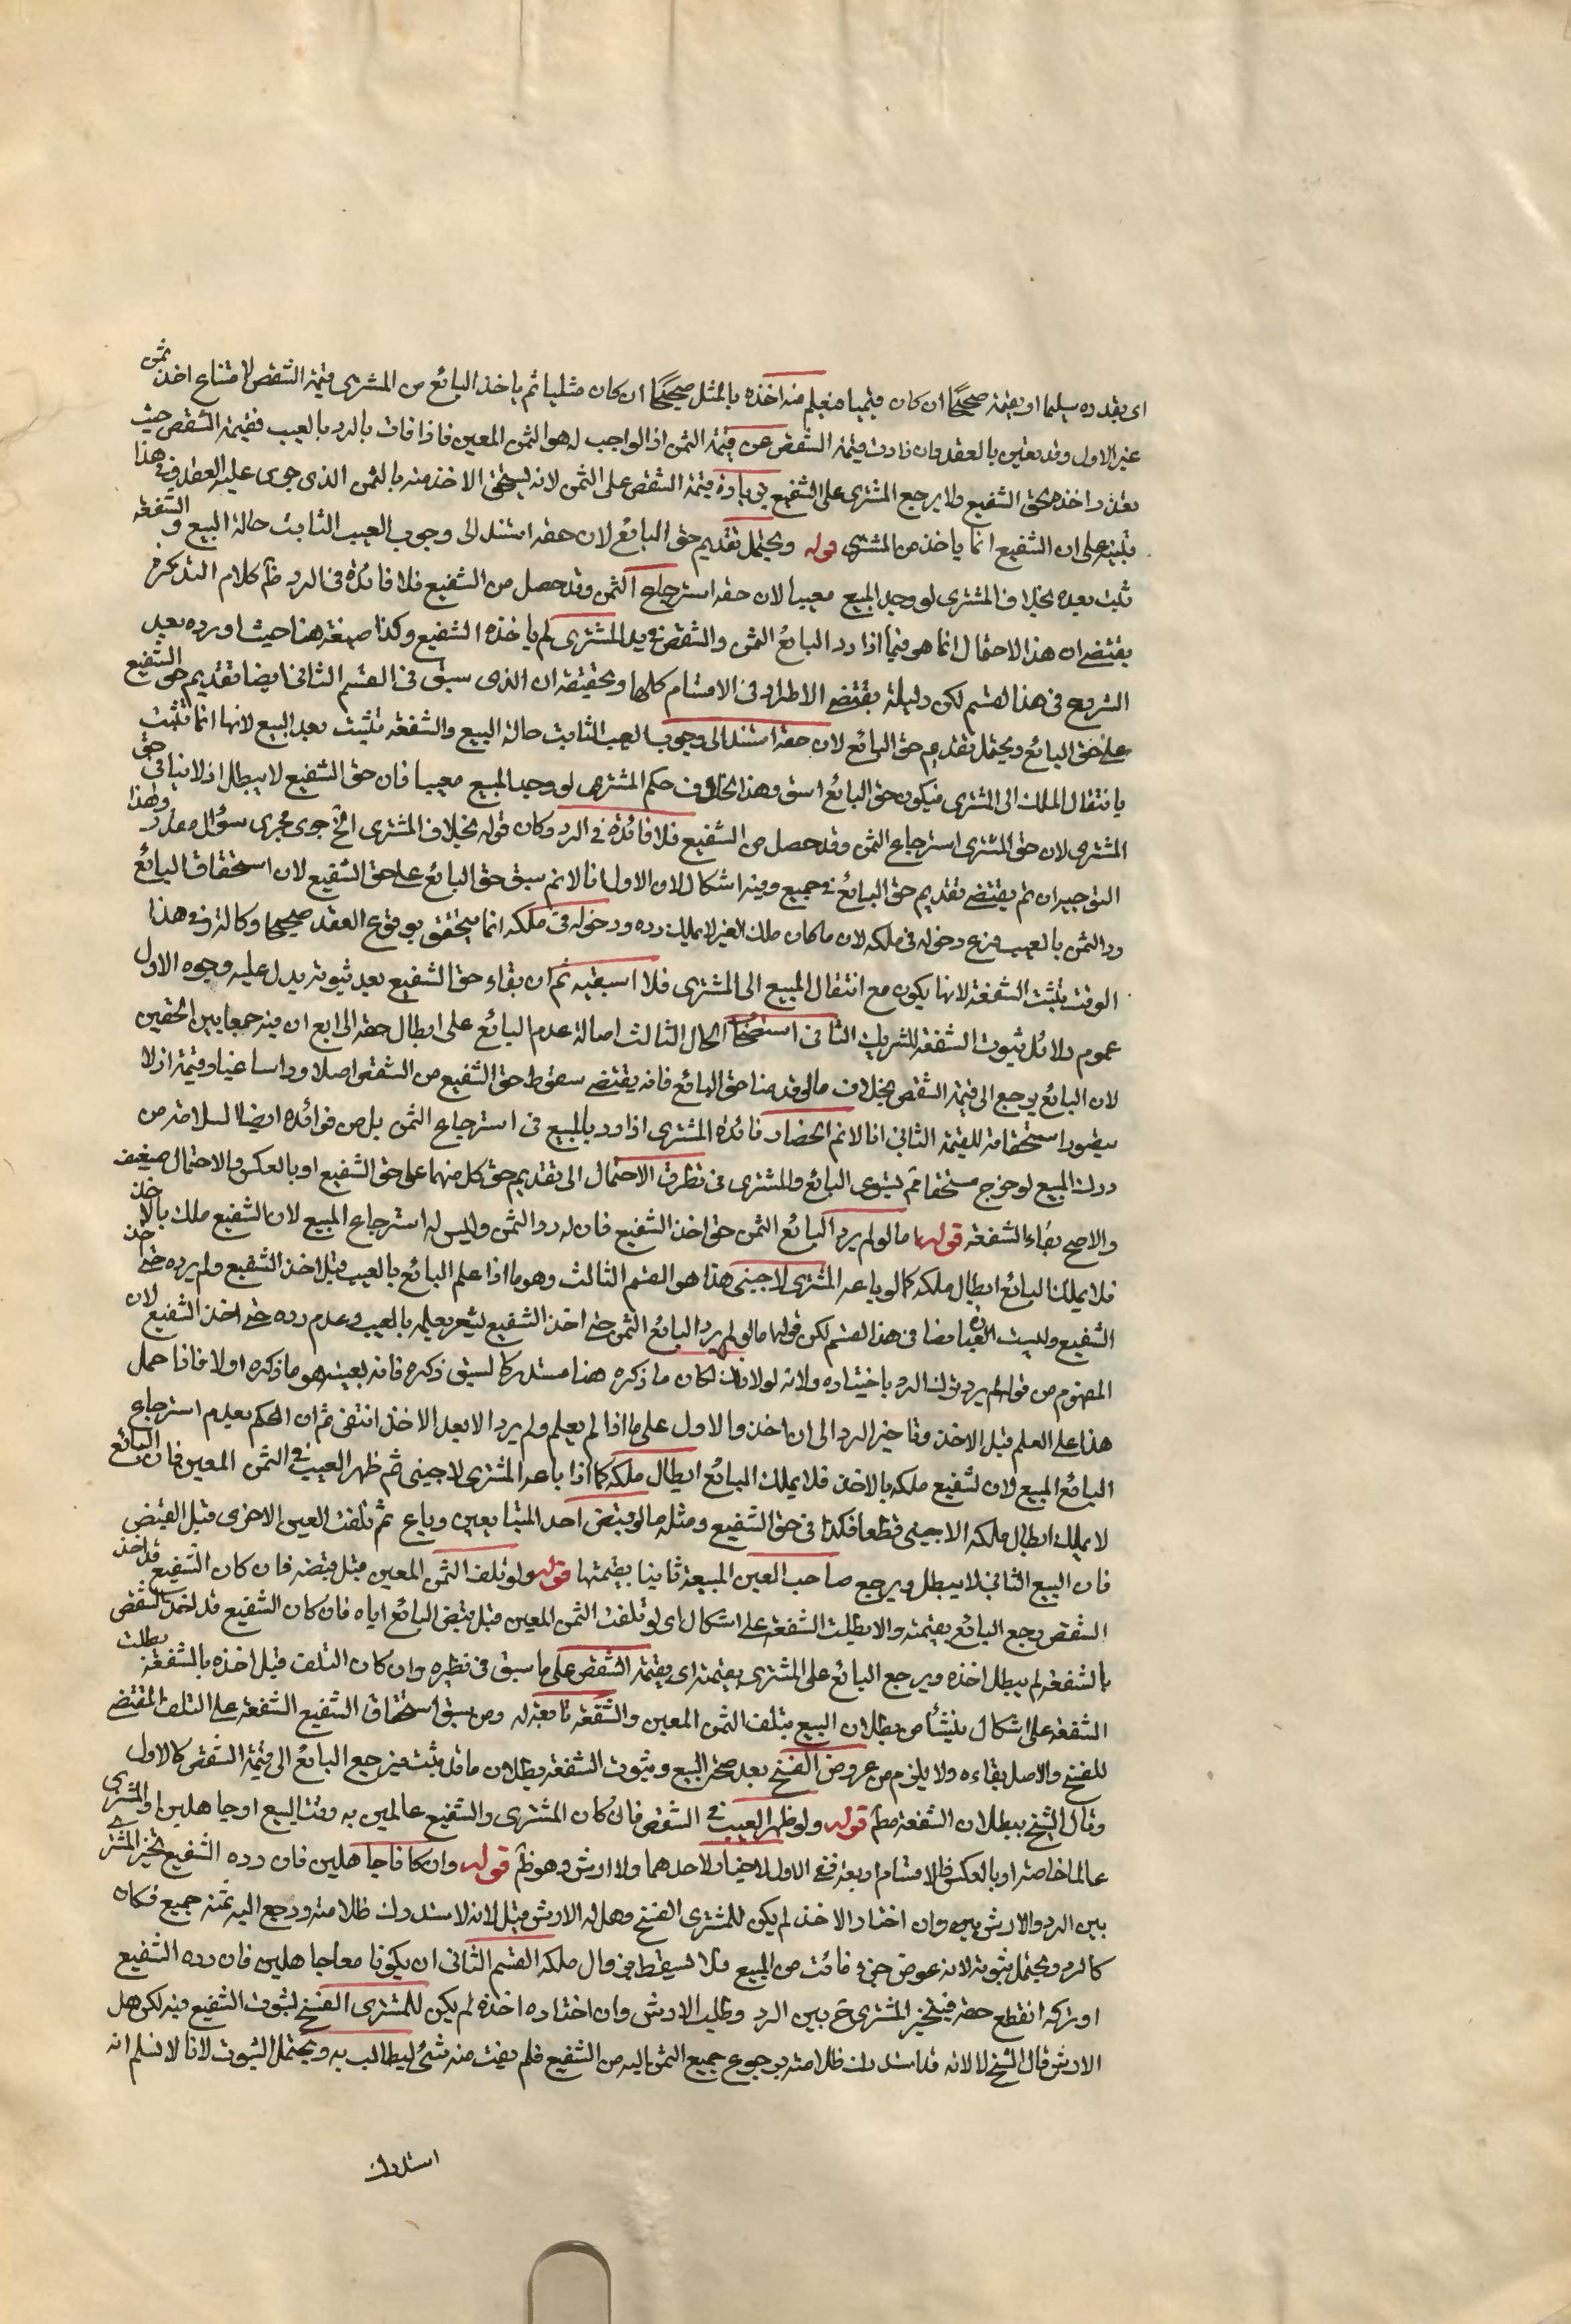 اى بقدره سليما او بقيمته صحيحا ان كان قيميا فيعلم منه اخذه بالمثل صحيحا ان كان مثليا ثم ياخذ البائع من المشترى قيمة الشقص لامتناع اخذ ثمن
غير الاول وقد تعين بالعقد وان زادت قيمة الشقص عن قيمة الثمن اذ الواجب له هو الثمن المعين فاذا فات بالرد بالعيب فقيمة الشقص حيث
تعذر اخذه بحق الشفيع ولا يرجع المشترى على الشفيع بزيادة قيمة الشقص على الثمن لانه يستحق الاخذ منه بالثمن الذى جرى عليه العقد وفى هذا
تنبيه على ان الشفيع انما ياخذ من المشترى قوله ويحتمل تقديم حق البائع لان حقه استند الى وجوب العيب الثابت حالة البيع والشفعة
تثبت بعده بخلاف المشترى لو وجد المبيع معيبا لان حقه استرجاع الثمن وقد حصل من الشفيع فلا فائدة فى الرد ظ كلام التذكرة
يقتضى ان هذا الاحتمال انما هو فيما اذا رد البائع الثمن والشقص فى يد المشترى لم ياخذه الشفيع وكذا صيغته هنا حيث اورده بعد
الشروع فى هذا القسم لكن دليله يقتضى الاطراد فى الاقسام كلها وتحقيقه ان الذى سبق فى القسم الثانى ايضا تقديم حق الشفيع
على حق البائع ويحتمل تقديم حق البائع لان حقه استند الى وجوب العيب الثابت حالة البيع والشفعة تثبت بعد البيع لانها انما تثبت
بانتقال الملك الى المشترى فيكون حق البائع اسبق وهذا بخلاف حكم المشترى لو وجد المبيع معيبا فان حق الشفيع لا يبطل اذ لا ينافى حق
المشترى لان حق المشترى استرجاع الثمن وقد حصل من الشفيع فلا فائدة فى الرد وكان قوله بخلاف المشترى الخ جرى مجرى سؤال مقدر ولهذا
التوجيه ان تم يقتضى تقديم حق البائع فى جميع وفيه اشكال لان الاول انا لا نم سبق حق البائع على حق الشفيع لان استحقاق البائع
رد الثمن بالعيب فرع دخوله فى ملكه لان ما كان ملك الغير لا يملك رده ودخوله فى ملكه انما يتحقق بوقوع العقد صحيحا وكالة وفى هذا
الوقت تثبت الشفعة لانها يكون مع انتقال المبيع الى المشترى فلا اسبقيه ثم ان بقاء حق الشفيع بعد ثبوته يدل عليه وجوه الاول
عموم دلائل ثبوت الشفعة للشريك الثانى استصحاب الحال الثالث اصالة عدم البائع على ابطال حقه الرابع ان فيه جمعا بين الحقين
لان البائع يرجع الى قيمة الشقص بخلاف ما لو قدمنا حق البائع فانه يقتضى سقوط حق الشفيع من الشقص اصلا وراسا عينا وقيمة اذ لا
يتصور استحقاقه للقيمة الثانى انا لا نم انحصار فائدة المشترى اذا رد بالمبيع فى استرجاع الثمن بل من فوائده ايضا السلامة من
درك المبيع لو خرج مستحقا ثم يستوى البائع والمشترى فى تطرق الاحتمال الى تقديم حق كل منهما على حق الشفيع او بالعكس والاحتمال ضعيف
والاصح بقاء الشفعة قوله اما لو لم يرد البائع الثمن حتى اخذ الشفيع فان له رد الثمن وليس له استرجاع المبيع لان الشفيع ملك بالاخذ
فلا يملك البائع ابطال ملكه كما لو باعه المشترى لاجنبى هذا هو القسم الثالث وهو ما اذا علم البائع بالعيب قبل اخذ الشفيع ولم يرده حتى اخذ
الشفيع وليست العبارة نصا فى هذا القسم لكن قوله اما لو لم يرد البائع الثمن حتى اخذ الشفيع يشعر بعلمه بالعيب وعدم رده حتى اخذ الشفيع لان
المفهوم من قوله لم يرد ترك الرد باختياره ولانه لولا ذلك لكان ما ذكره هنا مستدركا لسبق ذكره فانه بعينه هو ما ذكره اولا فاذا حمل
هذا على العلم قبل الاخذ وتاخير الرد الى ان اخذ والاول على ما اذا لم يعلم ولم يرد الا بعد الاخذ انتفى ثم ان الحكم بعدم استرجاع
البائع المبيع لان الشفيع ملكه بالاخذ فلا يملك البائع ابطال ملكه كما اذا باعه المشترى لاجنبى ثم ظهر العيب فى الثمن المعين فان البائع
لا يملك ابطال ملكه الاجنبى قطعا فكذا فى حق الشفيع ومثله ما لو قبض احد المتبايعين وباع ثم تلفت العين الاخرى قبل القبض
فان البيع الثانى لا يبطل ويرجع صاحب العين المبيعة ثانيا بقيمتها قوله ولو تلف الثمن المعين قبل قبضه فان كان الشفيع قد اخذ
الشقص رجع البائع بقيمته والا بطلت الشفعة على اشكال اى لو تلفت الثمن المعين قبل قبض البائع اياه فان كان الشفيع قد اخذ الشقص
بالشفعة لم يبطل اخذه ويرجع البائع على المشترى بقيمته اى بقيمة الشقص على ما سبق فى نظيره وان كان التلف قبل اخذه بالشفعة بطلت
الشفعة على اشكال ينشأ من بطلان البيع بتلف الثمن المعين والشفعة تابعة له ومن سبق استحقاق الشفيع الشفعة على التلف المقتضى
للفسخ والاصل بقاءه ولا يلزم من عروض الفسخ بعد صحة البيع وثبوت الشفعة بطلان ما قد يثبت فيرجع البائع الى قيمة الشقص كالاول
وقال الشيخ ببطلان الشفعة مطلقا قوله ولو ظهر العيب فى الشقص فان كان المشترى والشفيع عالمين به وقت البيع او جاهلين او المشترى
عالما خاصة او بالعكس فالاقسام اربعة ففى الاول لا خيار لاحدهما ولا ارش وهو ظ قوله وان كانا جاهلين فان رده الشفيع تخير المشترى
بين الرد والارش بين وان اختار الاخذ لم يكن للمشترى الفسخ وهل له الارش قيل لا لانه لا استدرك ظلامته ورجع اليه ثمنه جميع فكان
كالرد ويحتمل ثبوته لانه عوض جزء فائت من المبيع فلا يسقط بزوال ملكه القسم الثانى ان يكونا معا جاهلين فان رده الشفيع
او تركه انقطع حقه فيتخير المشترى ح بين الرد وطلب الارش وان اختار اخذه لم يكن للمشترى الفسخ لثبوت الشفيع فيه لكن هل
الارش قال الشيخ لا لانه قد استدرك ظلامته برجوع جميع الثمن اليه من الشفيع فلم يفت منه شئ ليطالب به ويحتمل الثبوت لانا لا نسلم انه
استدرك